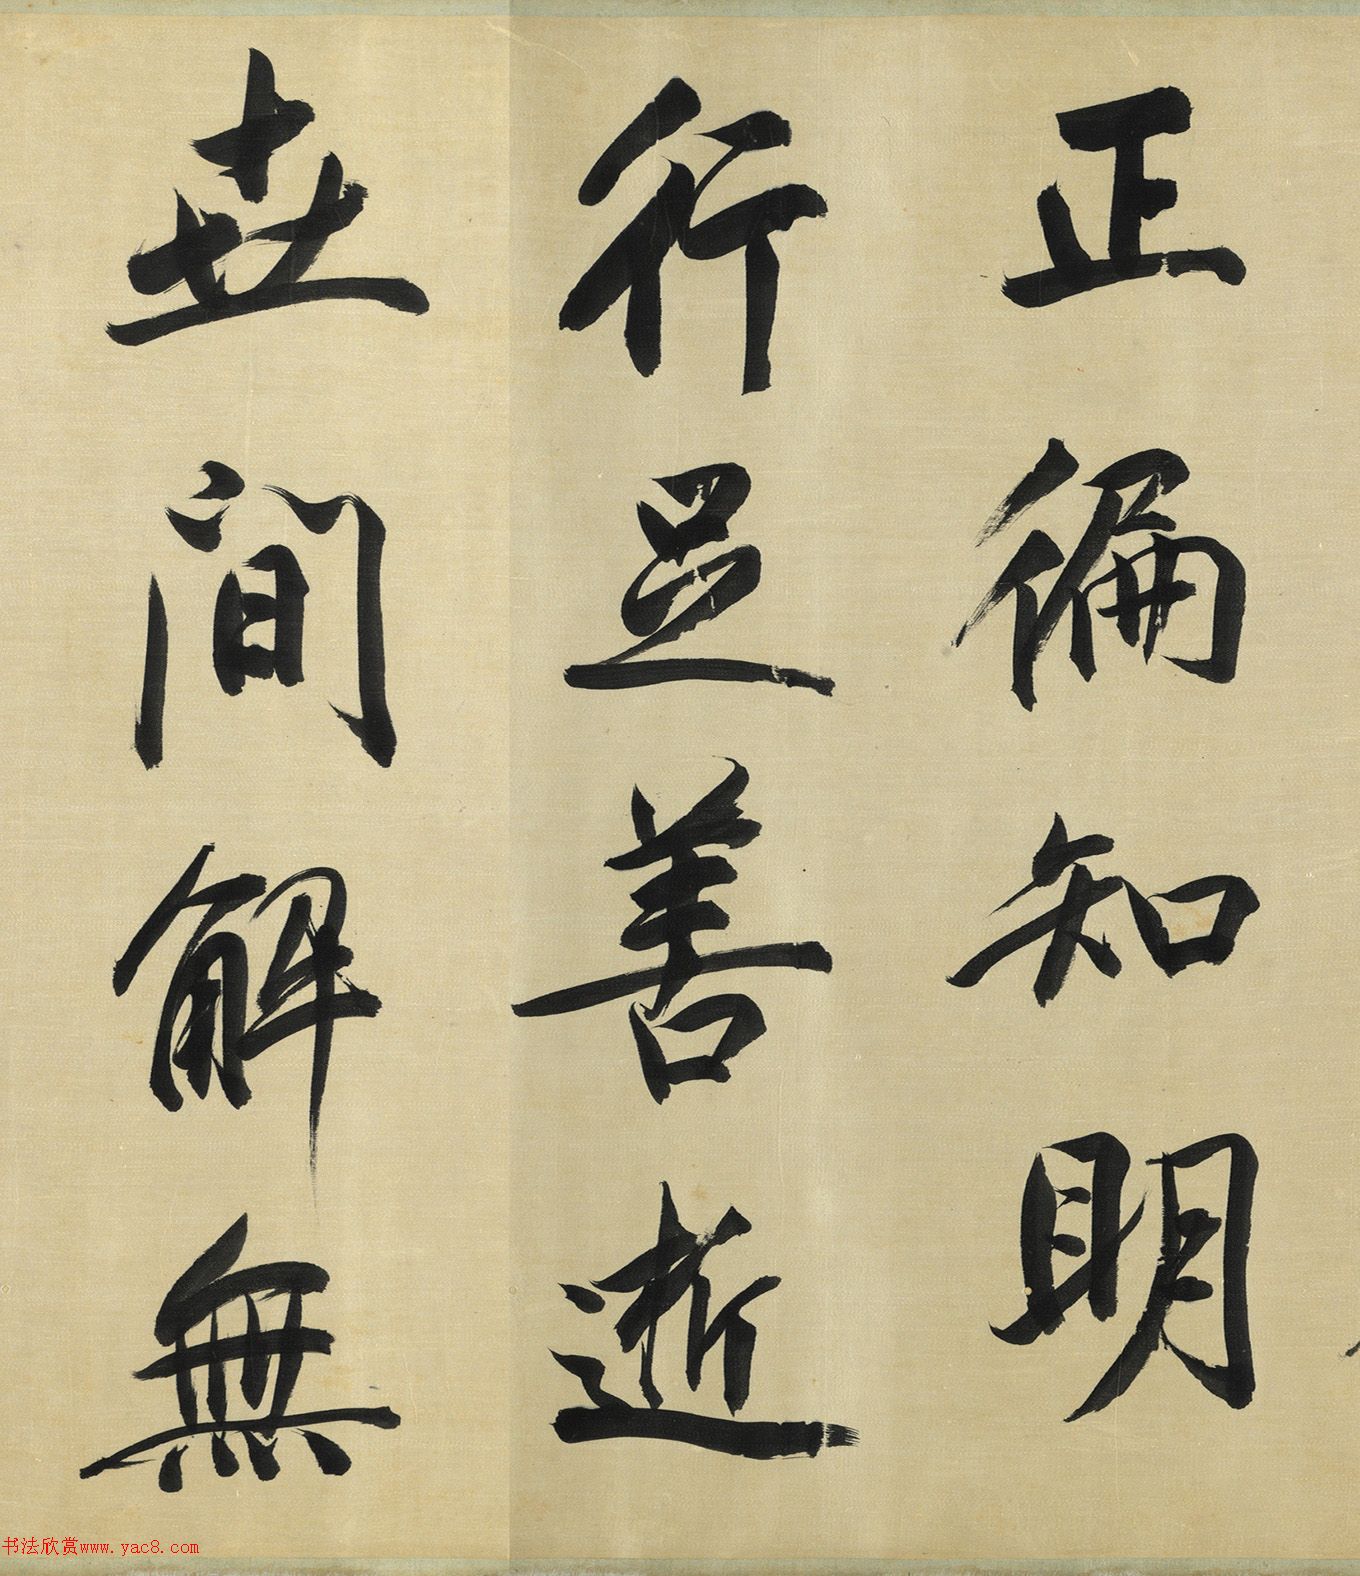 正徧知明
行足善逝
世間解無
书法欣赏www.yac8.com